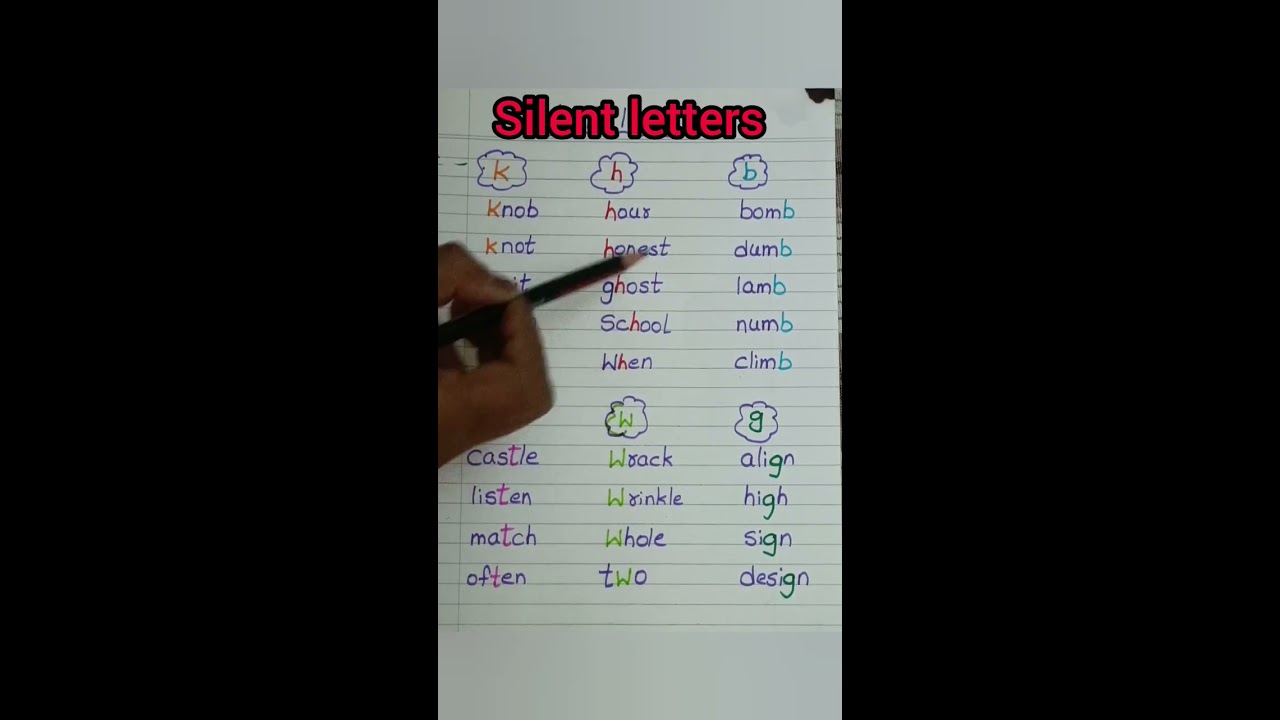 Silent letters
k h b
knob hour bomb
knot honest dumb
ghost lamb
School numb
When climb
w g
castle Wrack align
listen Wrinkle high
match Whole sign
often two design